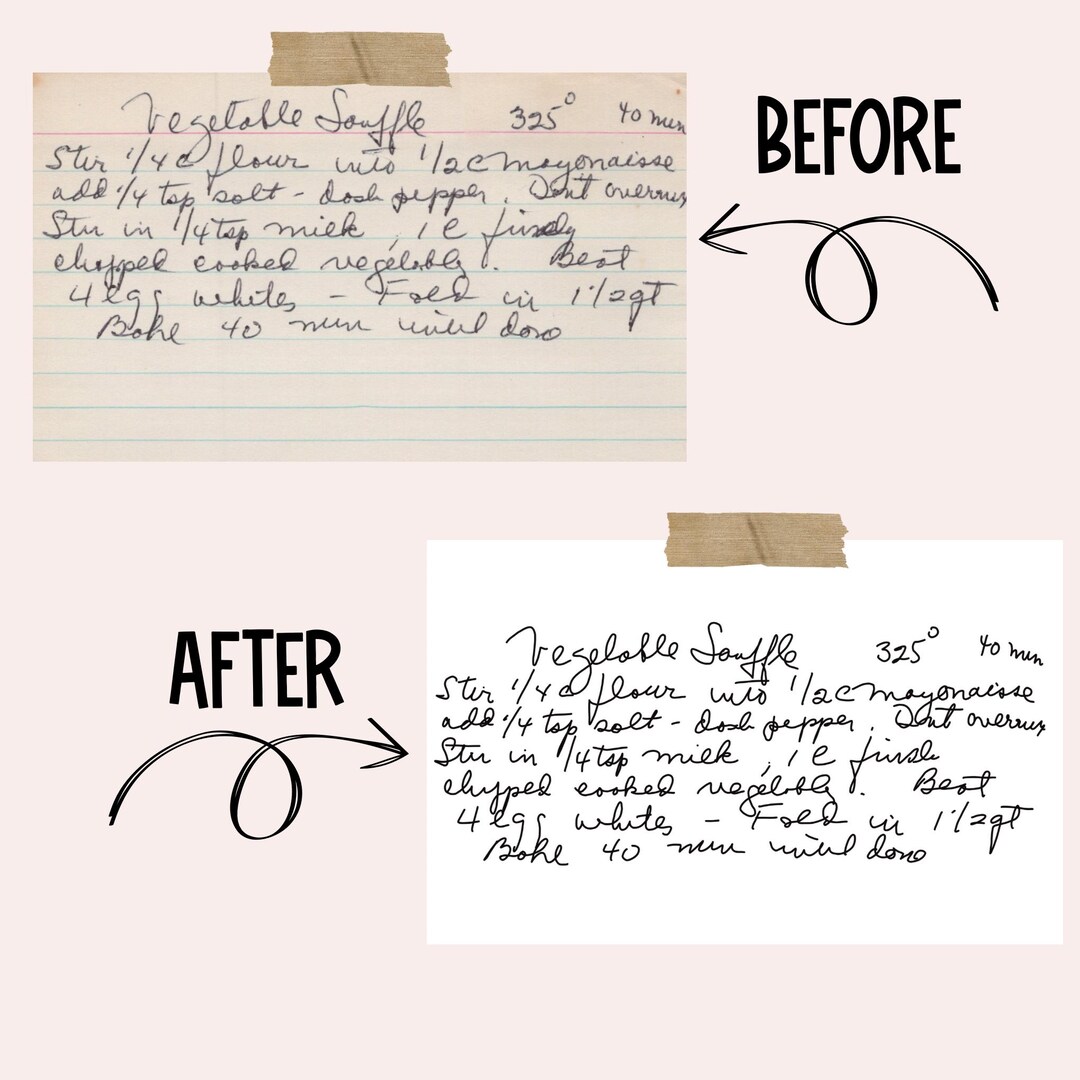 Vegetable Souffle 325° 40 min
Stir 1/4 c flour into 1/2 c mayonaisse
add 1/4 tsp salt - dash pepper. Don't overmix
Stir in 1/4 tsp milk, 1 c finely
chopped cooked vegetable. Beat
4 egg whites - Fold in 1 1/2 qt
Bake 40 min until done
BEFORE
AFTER
Vegetable Souffle 325° 40 min
Stir 1/4 c flour into 1/2 c mayonaisse
add 1/4 tsp salt - dash pepper. Don't overmix
Stir in 1/4 tsp milk, 1 c finely
chopped cooked vegetable. Beat
4 egg whites - Fold in 1 1/2 qt
Bake 40 min until done